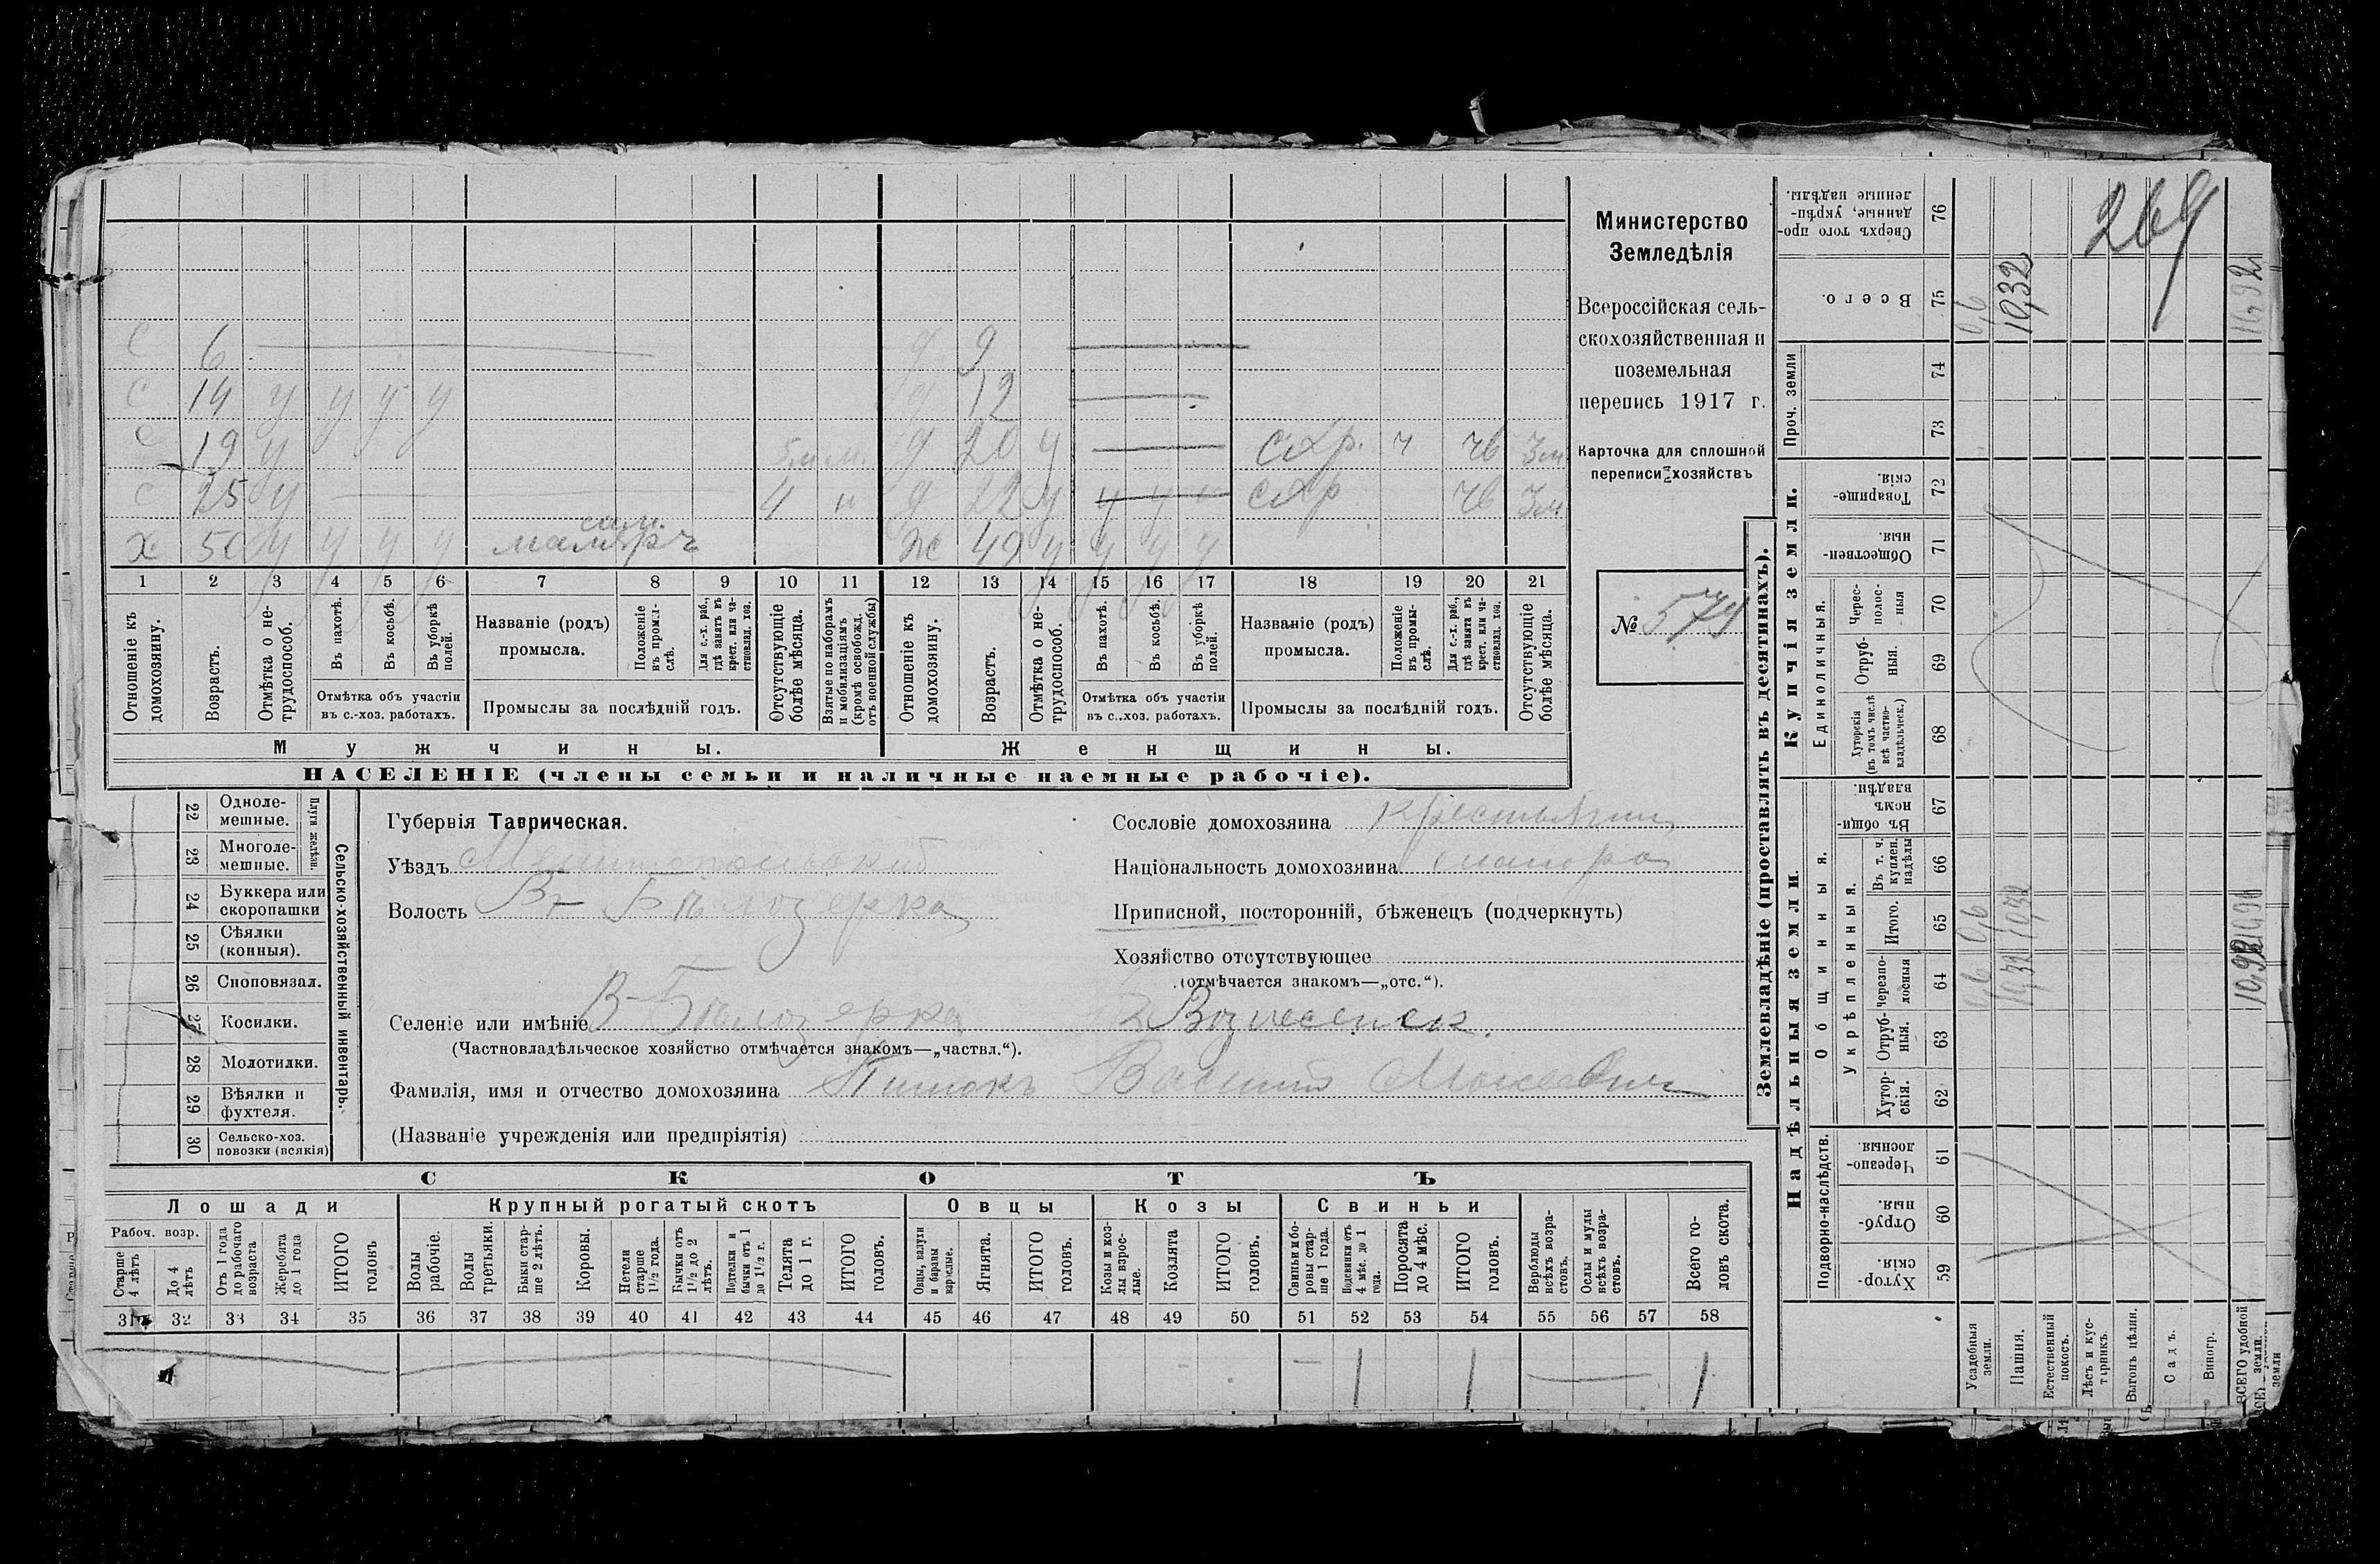 Министерство
Земледѣлія
Всероссійская сель-
скохозяйственная и
поземельная
перепись 1917 г.
Карточка для сплошной
переписи хозяйствъ
№ 574
269
С 6 д 9
С 14 у у у у д 12
С 19 у д 20 у ч чв 3 м
С 25 у 4 д 22 у у у у чв 3 м
Х 50 у у у у Ж 49 у у у у
1 2 3 4 5 6 7 8 9 10 11 12 13 14 15 16 17 18 19 20 21
Отношеніе къ домохозяину.
Возрастъ.
Отмѣтка о не-трудоспособ.
Въ пахотѣ.
Въ косьбѣ.
Въ уборкѣ полей.
Отмѣтка объ участіи въ с.-хоз. работахъ.
Названіе (родъ) промысла.
Положеніе въ промы-слѣ.
Для с.-х. раб., гдѣ занятъ въ крест. или ча-стновлад. хоз.
Промыслы за послѣдній годъ.
Отсутствующіе болѣе мѣсяца.
Взятые по наборамъ и мобилизаціямъ (кромѣ освобожд. отъ военной службы)
Отношеніе къ домохозяину.
Возрастъ.
Отмѣтка о не-трудоспособ.
Въ пахотѣ.
Въ косьбѣ.
Въ уборкѣ полей.
Отмѣтка объ участіи въ с..хоз. работахъ.
Названіе (родъ) промысла.
Положеніе въ промы-слѣ.
Для с.-х. раб., гдѣ занята въ крест. или ча-стновлад. хоз.
Промыслы за послѣдній годъ.
Отсутствующіе болѣе мѣсяца.
Мужчины. Женщины.
НАСЕЛЕНІЕ (члены семьи и наличные наемные рабочіе).
Сельско-хозяйственный инвентарь.
Плуги желѣзн.
22 Одноле-мешные.
23 Многоле-мешные.
24 Буккера или скоропашки
25 Сѣялки (конныя).
26 Сноповязал.
27 Косилки.
28 Молотилки.
29 Вѣялки и фухтеля.
30 Сельско-хоз. повозки (всякія)
Губернія Таврическая.
Уѣздъ Мелитопольскій
Волость В Бѣлозерка
Селеніе или имѣніе В-Бѣлозерка Вознесенск.
(Частновладѣльческое хозяйство отмѣчается знакомъ—„частвл.“).
Фамилія, имя и отчество домохозяина Василій Моисеевичъ
(Названіе учрежденія или предпріятія)
Сословіе домохозяина крестьянин
Національность домохозяина малоро
Приписной, посторонній, бѣженецъ (подчеркнуть)
Хозяйство отсутствующее
(отмѣчается знакомъ—„отс.“).
СКОТЪ
Лошади Крупный рогатый скотъ Овцы Козы Свиньи
Рабоч. возр.
Старше 4 лѣтъ
До 4 лѣтъ
Отъ 1 года до рабочаго возраста
Жеребята до 1 года
ИТОГО головъ
Волы рабочіе.
Волы третьяки.
Быки стар-ше 2 лѣтъ.
Коровы.
Нетели старше 1½ года.
Бычки отъ 1½ до 2 лѣтъ.
Подтелки и бычки отъ 1 до 1½ г.
Телята до 1 г.
ИТОГО головъ.
Овцы, валухи и бараны взрослые.
Ягнята.
ИТОГО головъ.
Козы и коз-лы взрос-лые.
Козлята
ИТОГО головъ.
Свиньи и бо-ровы стар-ше 1 года.
Подсвинки отъ 4 мѣс. до 1 года.
Поросята до 4 мѣс.
ИТОГО головъ.
Верблюды всѣхъ возра-стовъ.
Ослы и мулы всѣхъ возра-стовъ.
Всего го-ловъ скота.
31 32 33 34 35 36 37 38 39 40 41 42 43 44 45 46 47 48 49 50 51 52 53 54 55 56 57 58
1 1 1
Землевладѣніе (проставлять въ десятинахъ).
Надѣльныя земли. Купчія земли.
Подворно-наслѣдств.
Общинныя.
Укрѣпленныя.
Единоличныя.
Проч. земли
Хутор-скія. 59
Отруб-ныя. 60
Черезпо-лосныя 61
Хутор-скія. 62
Отруб-ныя. 63
Черезпо-лосныя 64
Итого. 65
Въ т. ч. куплен. надѣлы 66
Въ общин-номъ владѣн. 67
Хуторскія (въ томъ числѣ всѣ частно-владѣльческ.) 68
Отруб-ныя. 69
Черес-полос-ныя 70
Обществен-ныя. 71
Товарище-скія. 72
73
74
Всего. 75
Сверхъ того про-данные, укрѣп-ленные надѣлы. 76
Усадебныя земли. 0,6 0,6 0,6
Пашня. 10,32 10,32 10,32
Естественный покосъ.
Лѣсъ и кус-тарникъ.
Выгонъ цѣлин.
Садъ.
Виногр.
ВСЕГО удобной земли. 10,92 10,92